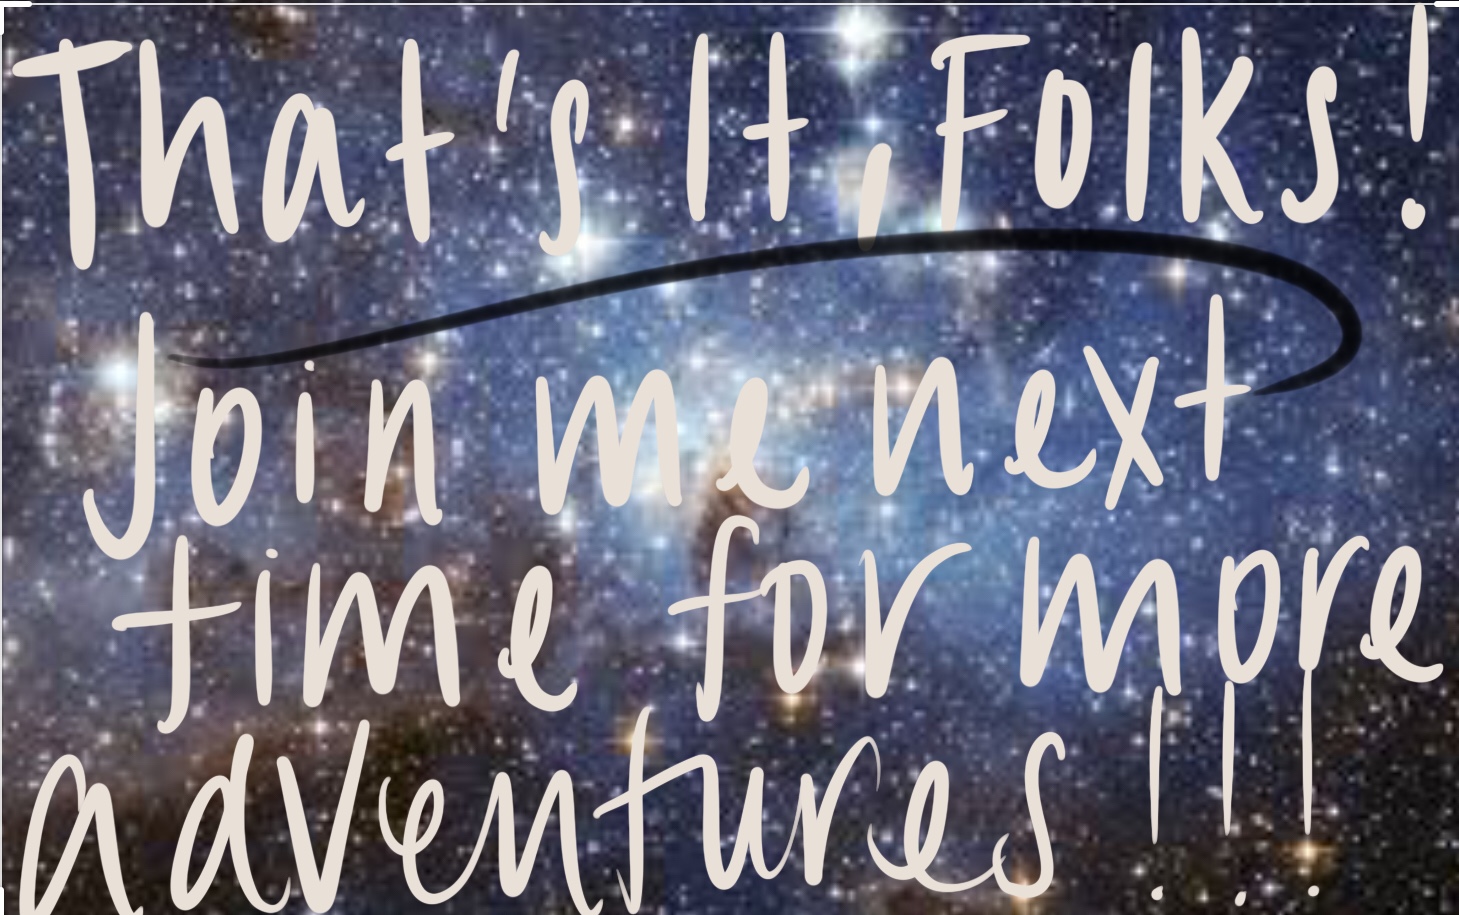 That's It, Folks!
Join me next
time for more
adventures!!!